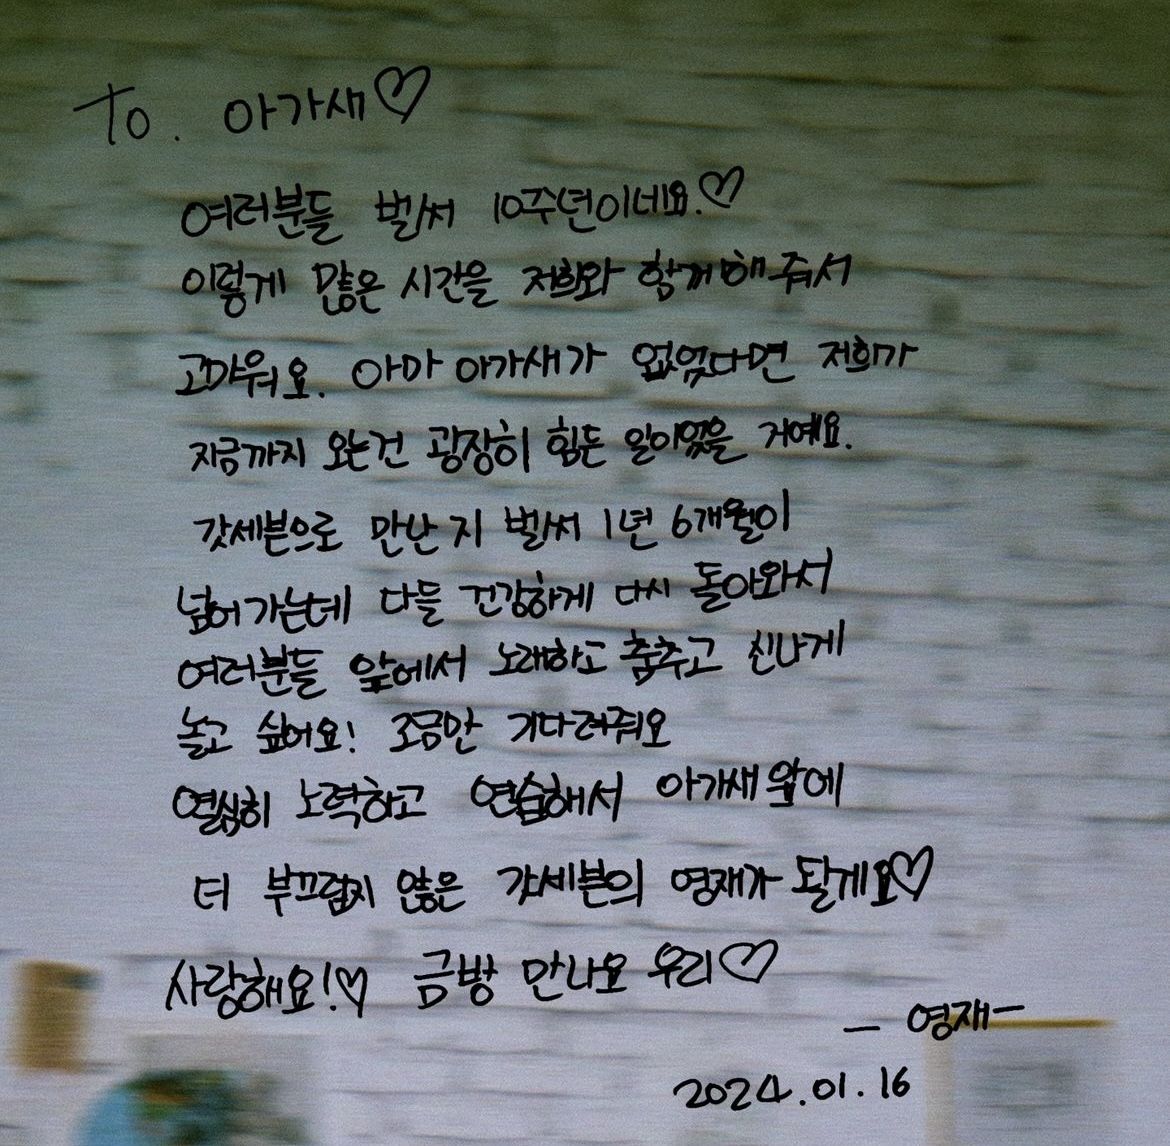 To. 아가새♡
여러분들 벌써 10주년이네요.♡
이렇게 많은 시간을 저희와 함께해줘서
고마워요. 아마 아가새가 없었다면 저희가
지금까지 오는건 굉장히 힘든 일이었을 거예요.
갓세븐으로 만난지 벌써 1년 6개월이
넘어가는데 다들 건강하게 다시 돌아와서
여러분들 앞에서 노래하고 춤추고 신나게
놀고 싶어요! 조금만 기다려줘요
열심히 노력하고 연습해서 아가새앞에
더 부끄럽지 않은 갓세븐의 영재가 될게요♡
사랑해요!♡ 금방 만나요 우리♡
— 영재—
2024.01.16